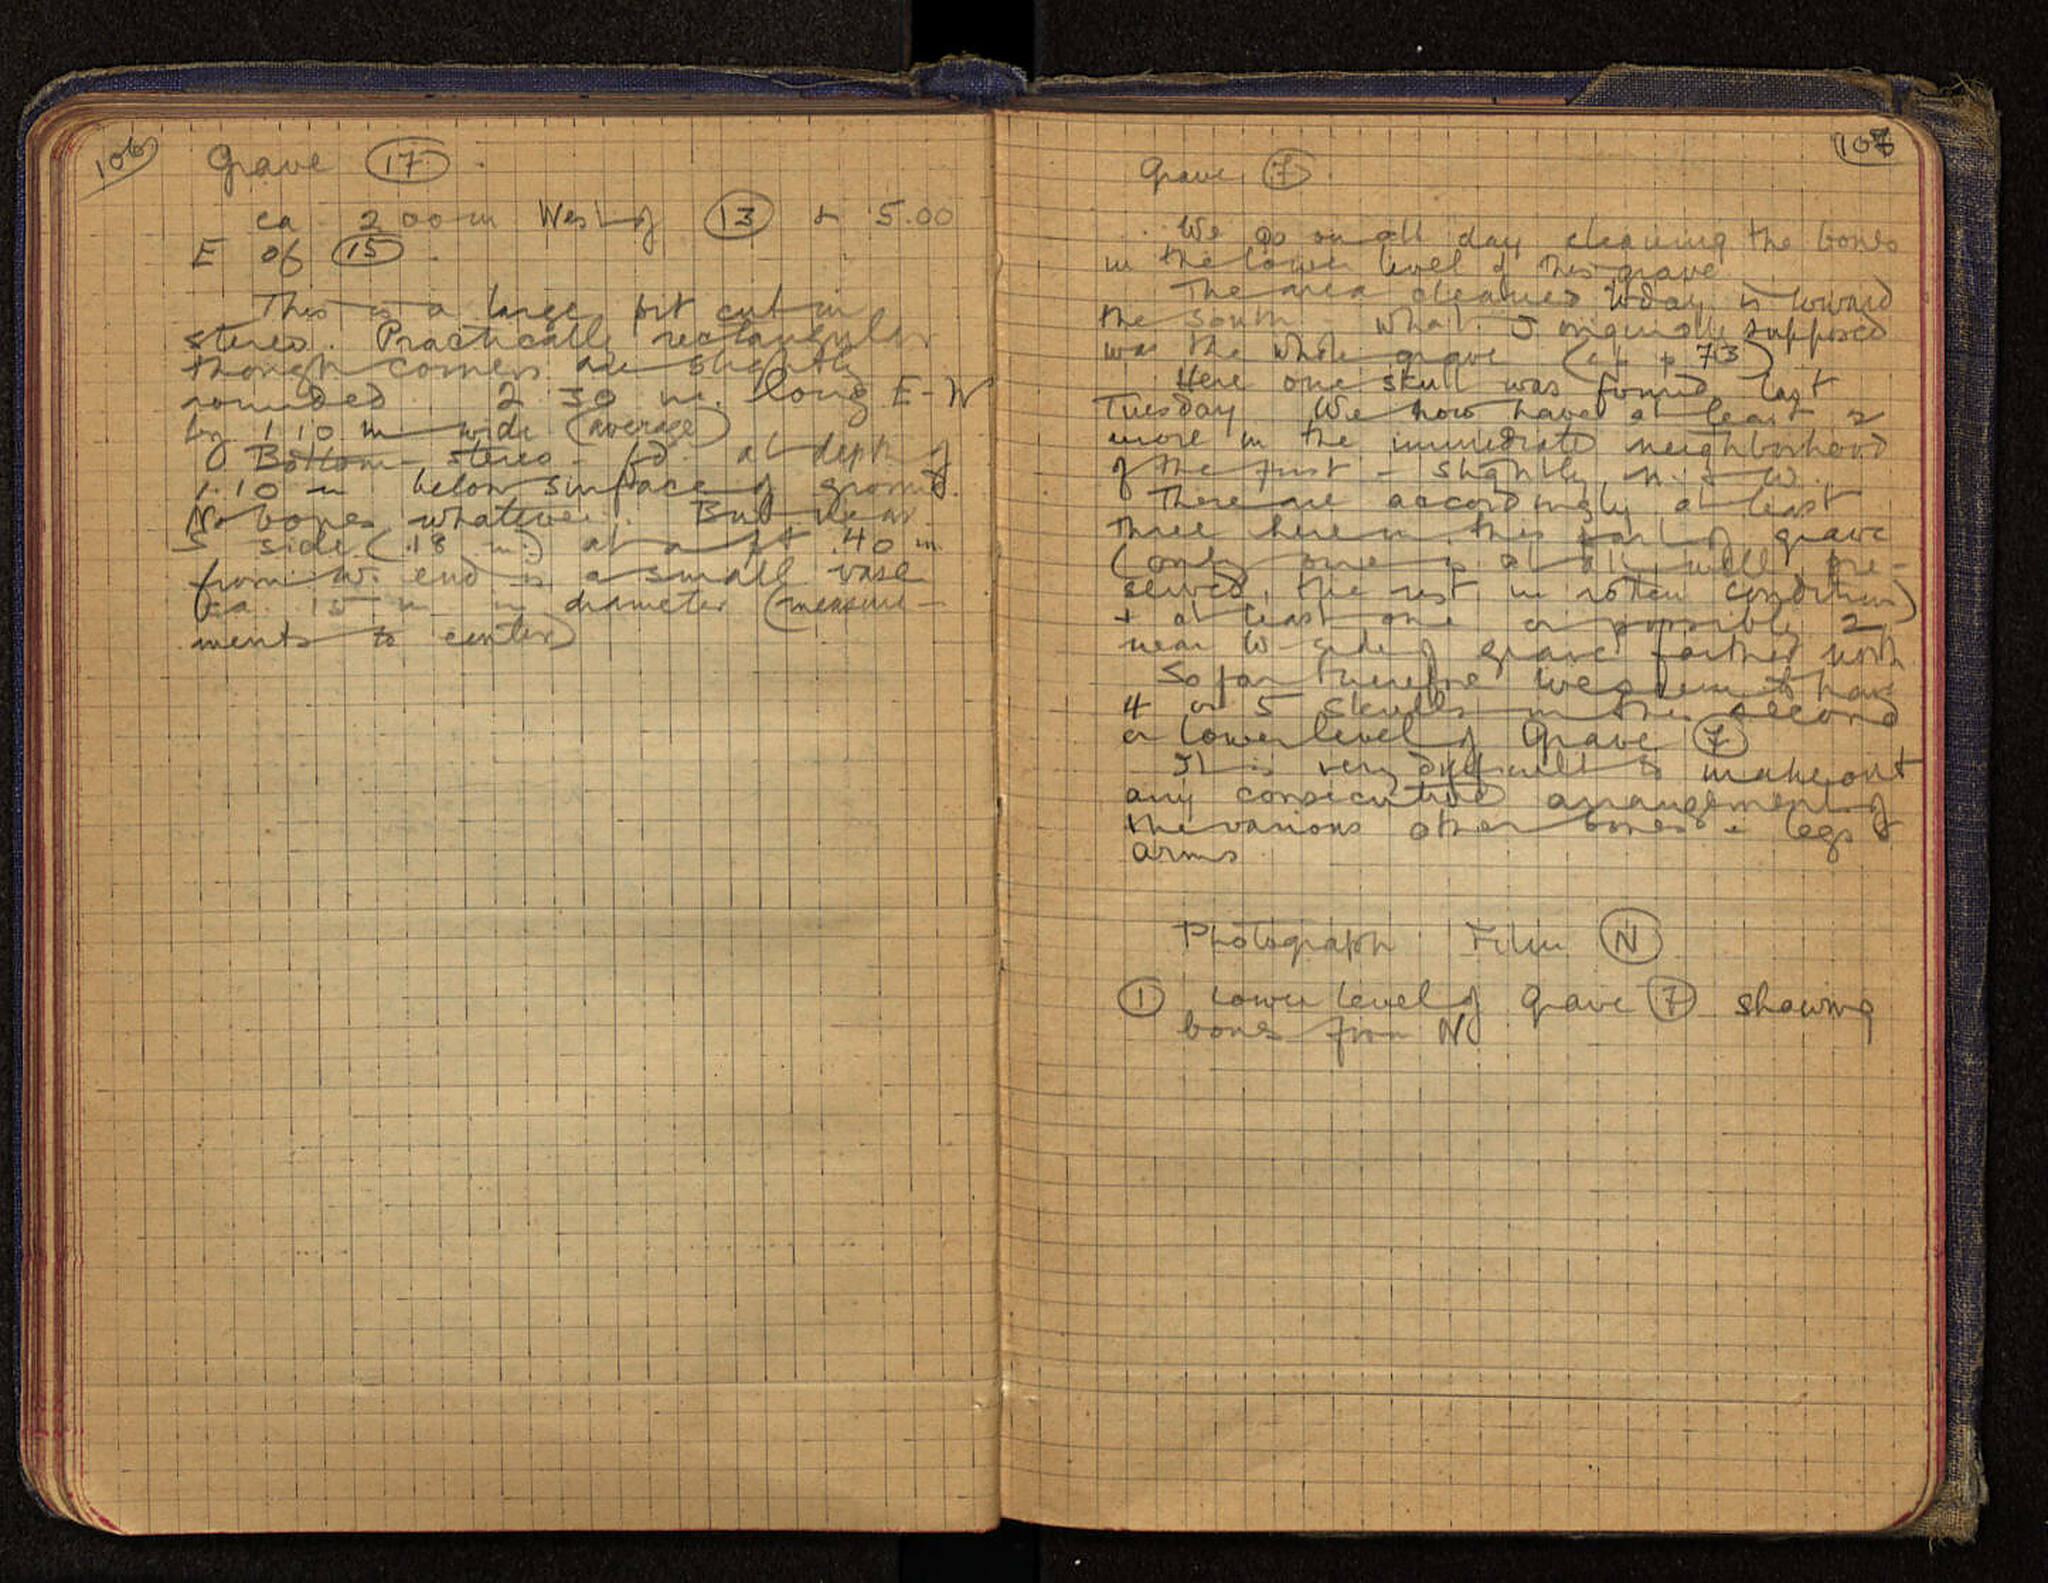 106
Grave (17).
ca 2.00 m West of (13) & 5.00
E of (15).
This is a large pit cut in
stereo. Practically rectangular
though corners are slightly
rounded. 2.30 m. long E-W
by 1.10 m wide (average)
Bottom - stereo - fd. at depth of
1.10 m below surface of ground.
No bones whatever. But near
S side (.18 m.) at a pt .40 m
from W. end is a small vase
ca .15 m in diameter (measure-
ments to center)
107
Grave (7).
We go on all day cleaning the bones
in the lower level of this grave.
The area cleaned today is toward
the south what I originally supposed
was the whole grave (cf. p 73)
Here one skull was found last
Tuesday We now have at least 2
more in the immediate neighborhood
of the first - slightly N. & W.
There are accordingly at least
three here in this part of grave
(only one is at all well pre-
served, the rest in rotten condition)
+ at least one or possibly 2
near W side of grave farther north
So far therefore we seem to have
4 or 5 skulls in the second
or lower level of Grave (7)
It is very difficult to make out
any consecutive arrangement of
the various other bones - legs &
arms.
Photograph Film (N)
(1) Lower level of Grave (7) showing
bones from N